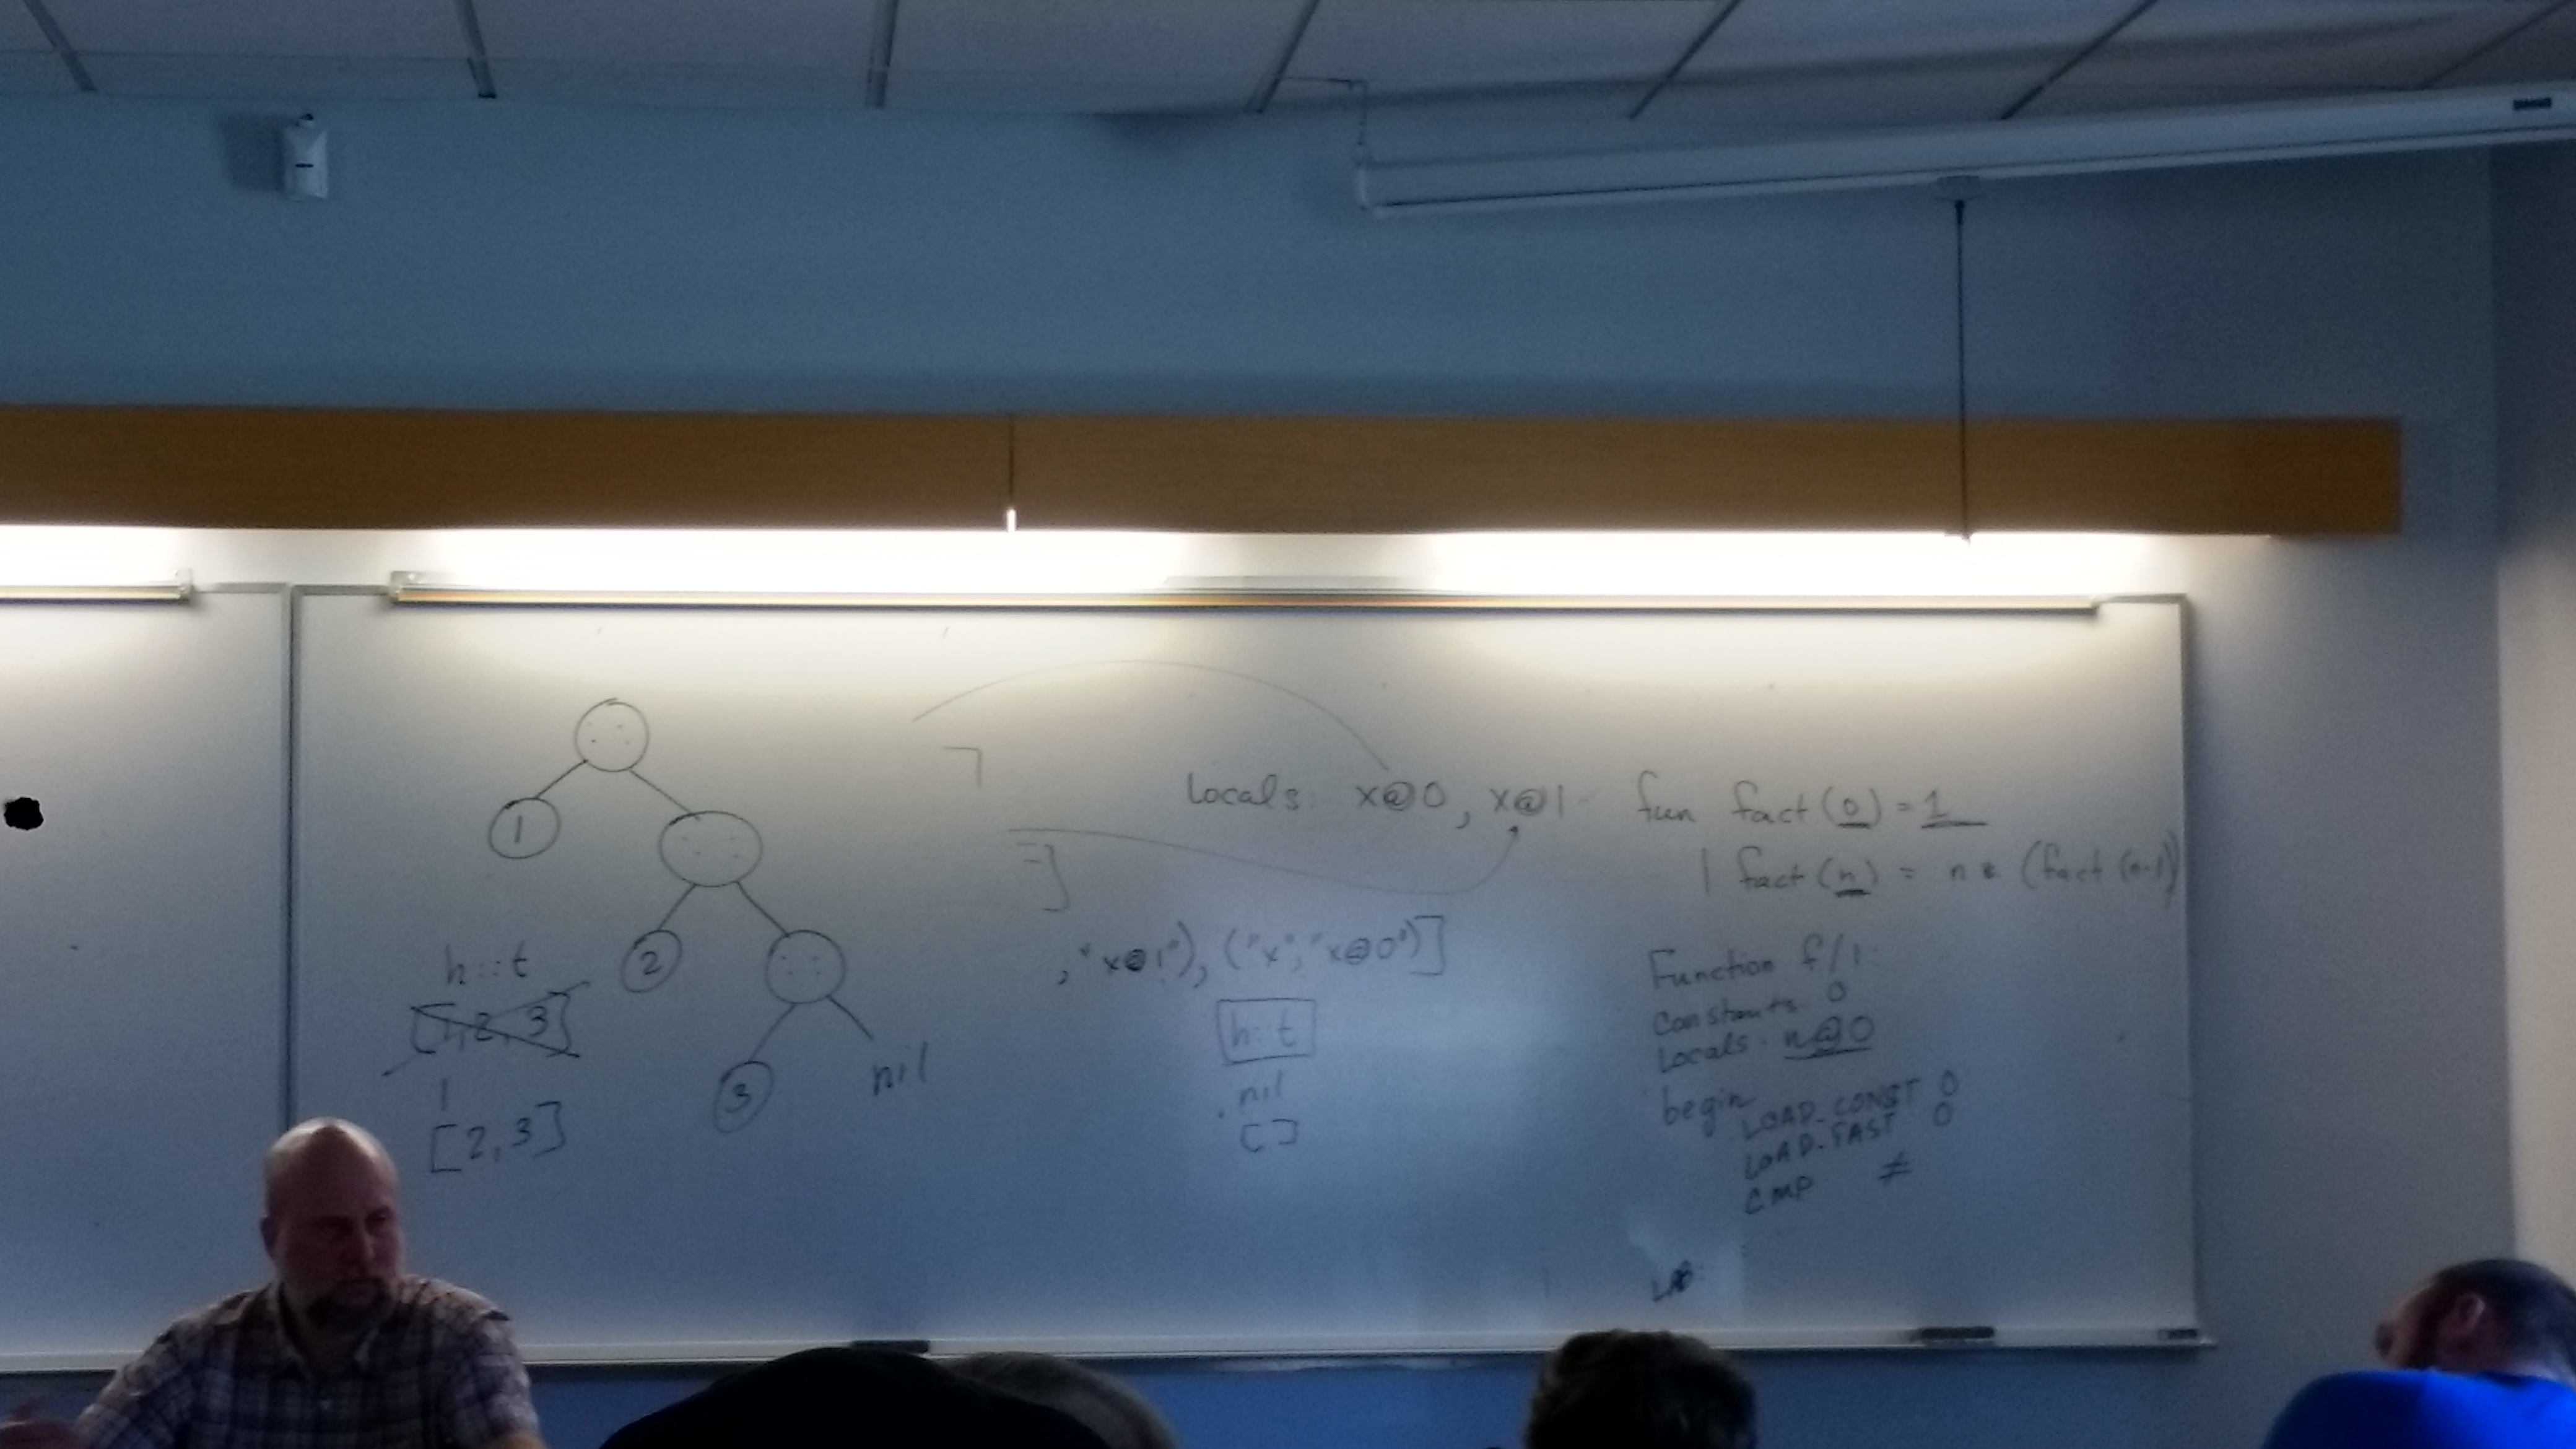 1
2
3
nil
h::t
[1,2,3]
1
[2,3]
Locals: x@0, x@1
,"x@1"), ("x","x@0")]
h::t
nil
[]
fun fact(0) = 1
| fact(n) = n * (fact(n-1))
Function f/1
Constants 0
Locals: n@0
begin
LOAD_CONST 0
LOAD_FAST 0
CMP ≠